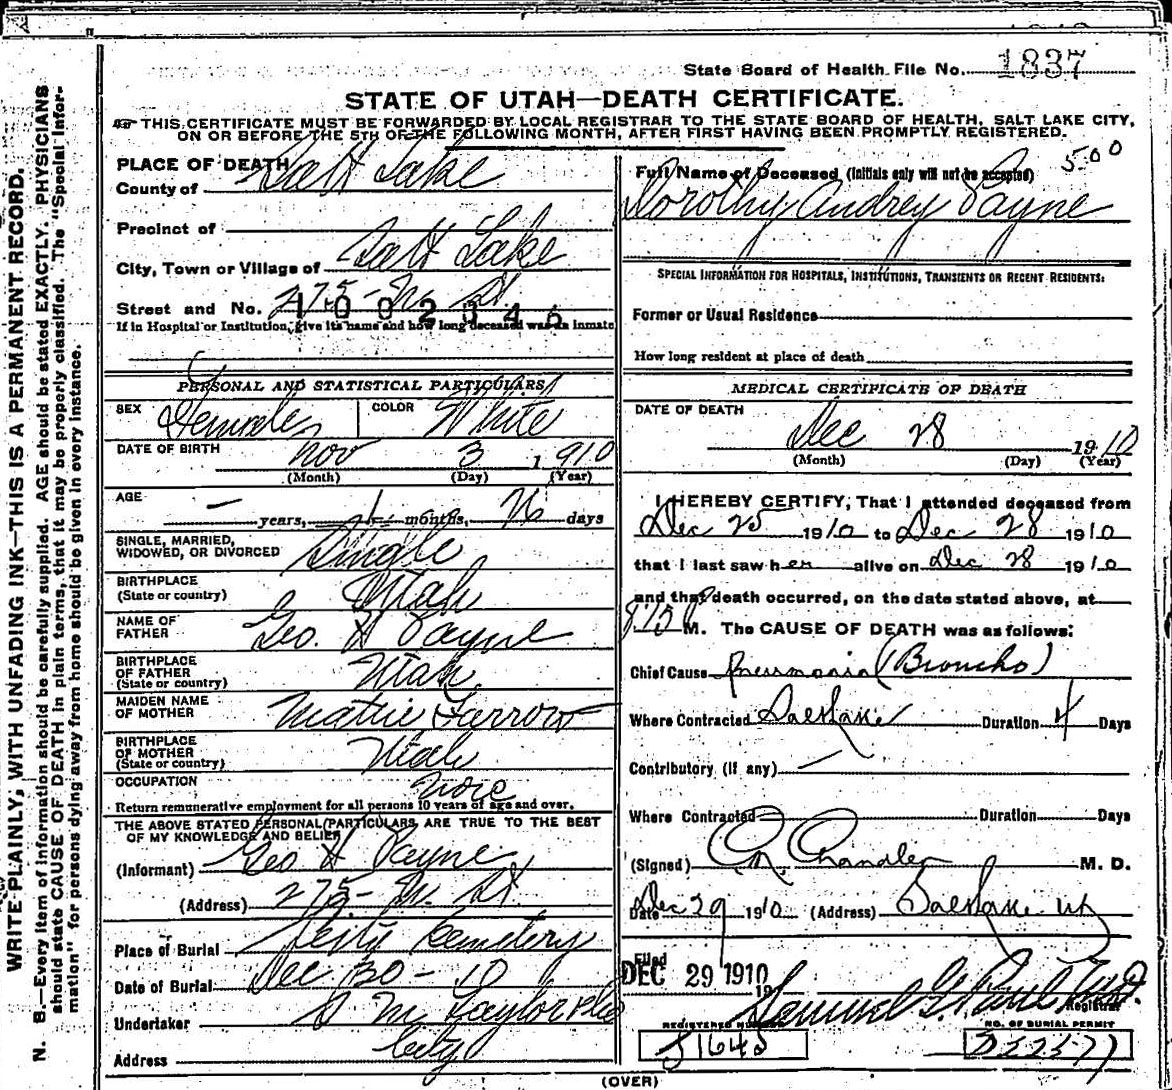 State Board of Health File No. 1837
STATE OF UTAH—DEATH CERTIFICATE.
THIS CERTIFICATE MUST BE FORWARDED BY LOCAL REGISTRAR TO THE STATE BOARD OF HEALTH, SALT LAKE CITY,
ON OR BEFORE THE 5TH OF THE FOLLOWING MONTH, AFTER FIRST HAVING BEEN PROMPTLY REGISTERED.
WRITE PLAINLY, WITH UNFADING INK—THIS IS A PERMANENT RECORD.
N. B.—Every item of information should be carefully supplied. AGE should be stated EXACTLY. PHYSICIANS
should state CAUSE OF DEATH in plain terms, that it may be properly classified. The "Special Infor-
mation" for persons dying away from home should be given in every instance.
PLACE OF DEATH
County of Salt Lake
Precinct of
City, Town or Village of Salt Lake
Street and No. 275 St.
1002346
If in Hospital or Institution, give its name and how long deceased was an inmate
PERSONAL AND STATISTICAL PARTICULARS
SEX Female COLOR White
DATE OF BIRTH Nov 3 1910
(Month) (Day) (Year)
AGE — years, 1 months, 26 days
SINGLE, MARRIED,
WIDOWED, OR DIVORCED Single
BIRTHPLACE
(State or country) Utah
NAME OF
FATHER Geo. H Payne
BIRTHPLACE
OF FATHER
(State or country) Utah
MAIDEN NAME
OF MOTHER Mattie Farrow
BIRTHPLACE
OF MOTHER
(State or country) Utah
OCCUPATION None
Return remunerative employment for all persons 10 years of age and over.
THE ABOVE STATED PERSONAL PARTICULARS ARE TRUE TO THE BEST
OF MY KNOWLEDGE AND BELIEF
(Informant) Geo H Payne
(Address) 275 St.
Place of Burial City Cemetery
Date of Burial Dec 30 - 10
Undertaker S M Taylor
Address City
5.00
Full Name of Deceased (Initials only will not be accepted)
Dorothy Audrey Payne
SPECIAL INFORMATION FOR HOSPITALS, INSTITUTIONS, TRANSIENTS OR RECENT RESIDENTS:
Former or Usual Residence
How long resident at place of death
MEDICAL CERTIFICATE OF DEATH
DATE OF DEATH
Dec 28 1910
(Month) (Day) (Year)
I HEREBY CERTIFY, That I attended deceased from
Dec 25 1910 to Dec 28 1910
that I last saw her alive on Dec 28 1910
and that death occurred, on the date stated above, at
8:15 P M. The CAUSE OF DEATH was as follows:
Chief Cause Pneumonia (Broncho)
Where Contracted Salt Lake Duration 4 Days
Contributory (if any) —
Where Contracted Duration Days
(Signed) Chandler M. D.
Date Dec 29 1910 (Address) Salt Lake Ut
Filed
DEC 29 1910 19
Samuel G. Paul M.D.
Registrar
REGISTERED NUMBER NO. OF BURIAL PERMIT
(OVER)